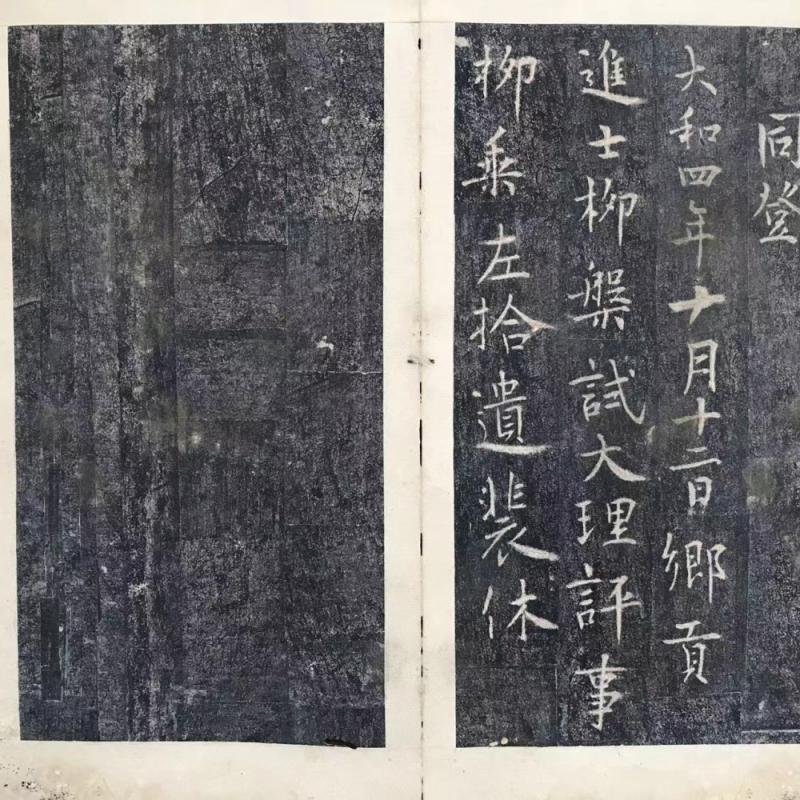 同登
大和四年十月十二日鄉貢
進士柳槃試大理評事
柳乘左拾遺裴休